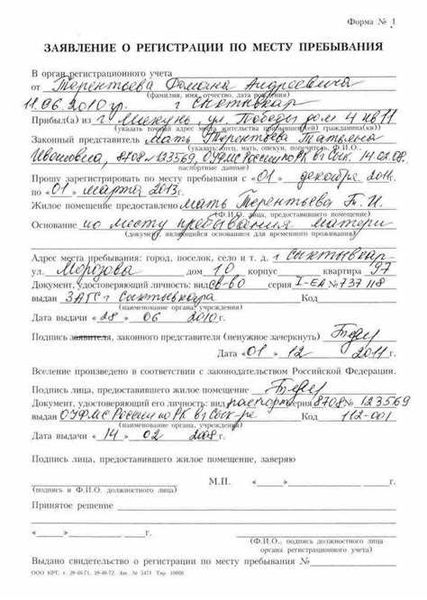 Форма № 1
ЗАЯВЛЕНИЕ О РЕГИСТРАЦИИ ПО МЕСТУ ПРЕБЫВАНИЯ
В орган регистрационного учета
от Терентьева Романа Андреевича
(фамилия, имя, отчество, дата рождения)
11.06.2010 г.р. г Сыктывкар
Прибыл(а) из г Микунь, ул. Победы дом 4 кв 11
(указать точный адрес места жительства гражданина(ки))
Законный представитель Мать Терентьева Татьяна
(указать: отец, мать, опекун, попечитель, Ф.И.О.
Ивановна, 8708 № 123569, ОУФМС России по РК в г Сык. 14.02.08.
паспортные данные)
Прошу зарегистрировать по месту пребывания с «01» декабря 2011г.
по «01» марта 2013г.
Жилое помещение предоставлено Мать Терентьева Т. И.
(Ф.И.О. лица, предоставившего помещение)
Основание по месту пребывания матери
(документ, являющийся основанием для временного проживания)
Адрес места пребывания: город, поселок, село и т. д. г Сыктывкар
ул. Морозова дом 10 корпус квартира 97
Документ, удостоверяющий личность: вид св-во серия I-ЕА № 737118
выдан ЗАГС г Сыктывкара Код
(наименование органа, учреждения)
Дата выдачи «28» 06 2010 г.
Подпись заявителя, законного представителя (ненужное зачеркнуть)
Дата «01» 12 2011 г.
Вселение произведено в соответствии с законодательством Российской Федерации.
Подпись лица, предоставившего жилое помещение
Документ, удостоверяющий его личность: вид паспорт серия 8708 № 123569
выдан ОУФМС России по РК в г Сык-ре Код 112-001
(наименование органа, учреждения)
Дата выдачи «14» 02 2008 г.
Подпись лица, предоставившего жилое помещение, заверяю
М.П. « » г.
(подпись и Ф.И.О. должностного лица)
Принятое решение
« » г.
(Ф.И.О., подпись должностного лица
органа регистрационного учета)
Выдано свидетельство о регистрации по месту пребывания №